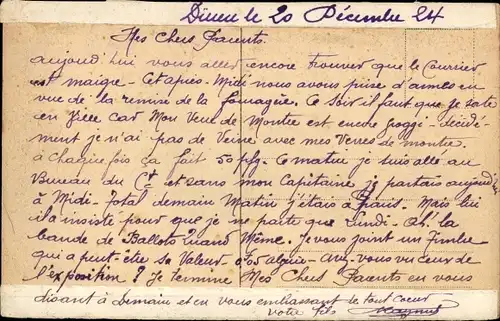 Düren le 20 Décembre 24
Mes Chers Parents.
aujourd'hui vous allez encore trouver que le Courrier
est maigre - Cet après-Midi nous avons prise d'armes en
vue de la remise de la fouragère. Ce soir il faut que je sorte
en Ville car Mon Verre de Montre est encore - décidé-
ment je n'ai pas de Veine avec mes Verres de montre.
à chaque fois ça fait 50 pfg. Ce matin je suis allé au
Bureau du Ct et sans mon Capitaine je partais aujourd'hui
à Midi - total demain Matin j'étais à Paris. Mais lui
il a insisté pour que je ne parte que Lundi - Ah! la
bande de Ballots Quand Même. Je vous joint un Timbre
qui a peut être sa Valeur - Avez-vous vu ceux de
l'exposition? Je termine Mes Chers Parents en vous
disant à Demain et en vous embrassant de tout coeur
votre fils